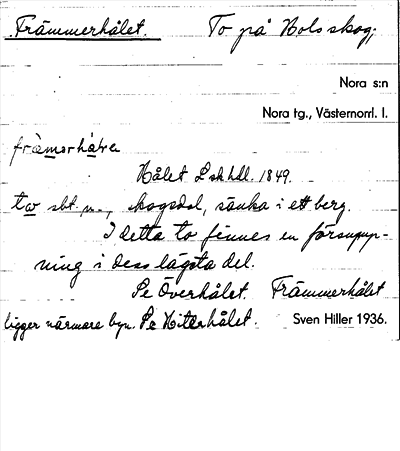 Främmerhålet. To på Hols skog.
Nora s:n
Nora tg., Västernorrl. l.
Hålet L sk hdl. 1849.
to sbt. n., skogsdal, sänka i ett berg.
I detta to finnes en försupup-
ning i dess lägsta del.
Se Överhålet. Främmerhålet
ligger närmare byn. Se Hitterhålet. Sven Hiller 1936.